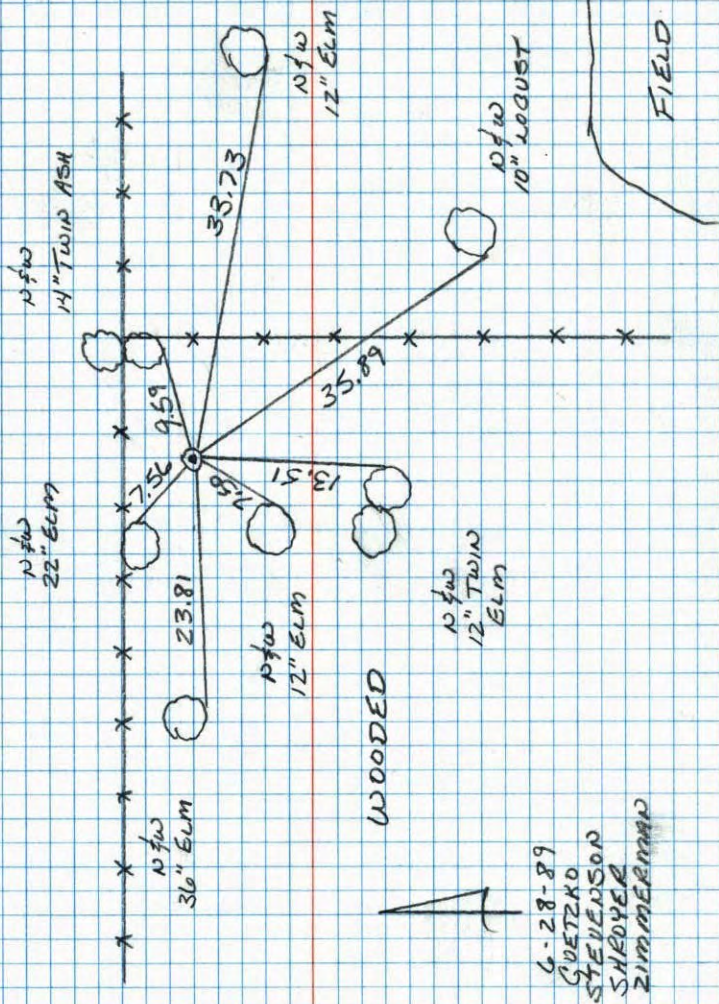 N&W
22" ELM
N&W
14" TWIN ASH
N&W
12" ELM
N&W
10" LOCUST
FIELD
33.73
35.89
9.59
7.56
7.58
13.51
23.81
N&W
36" ELM
N&W
12" ELM
N&W
12" TWIN
ELM
WOODED
6-28-89
GOETZKO
STEVENSON
SHROYER
ZIMMERMAN